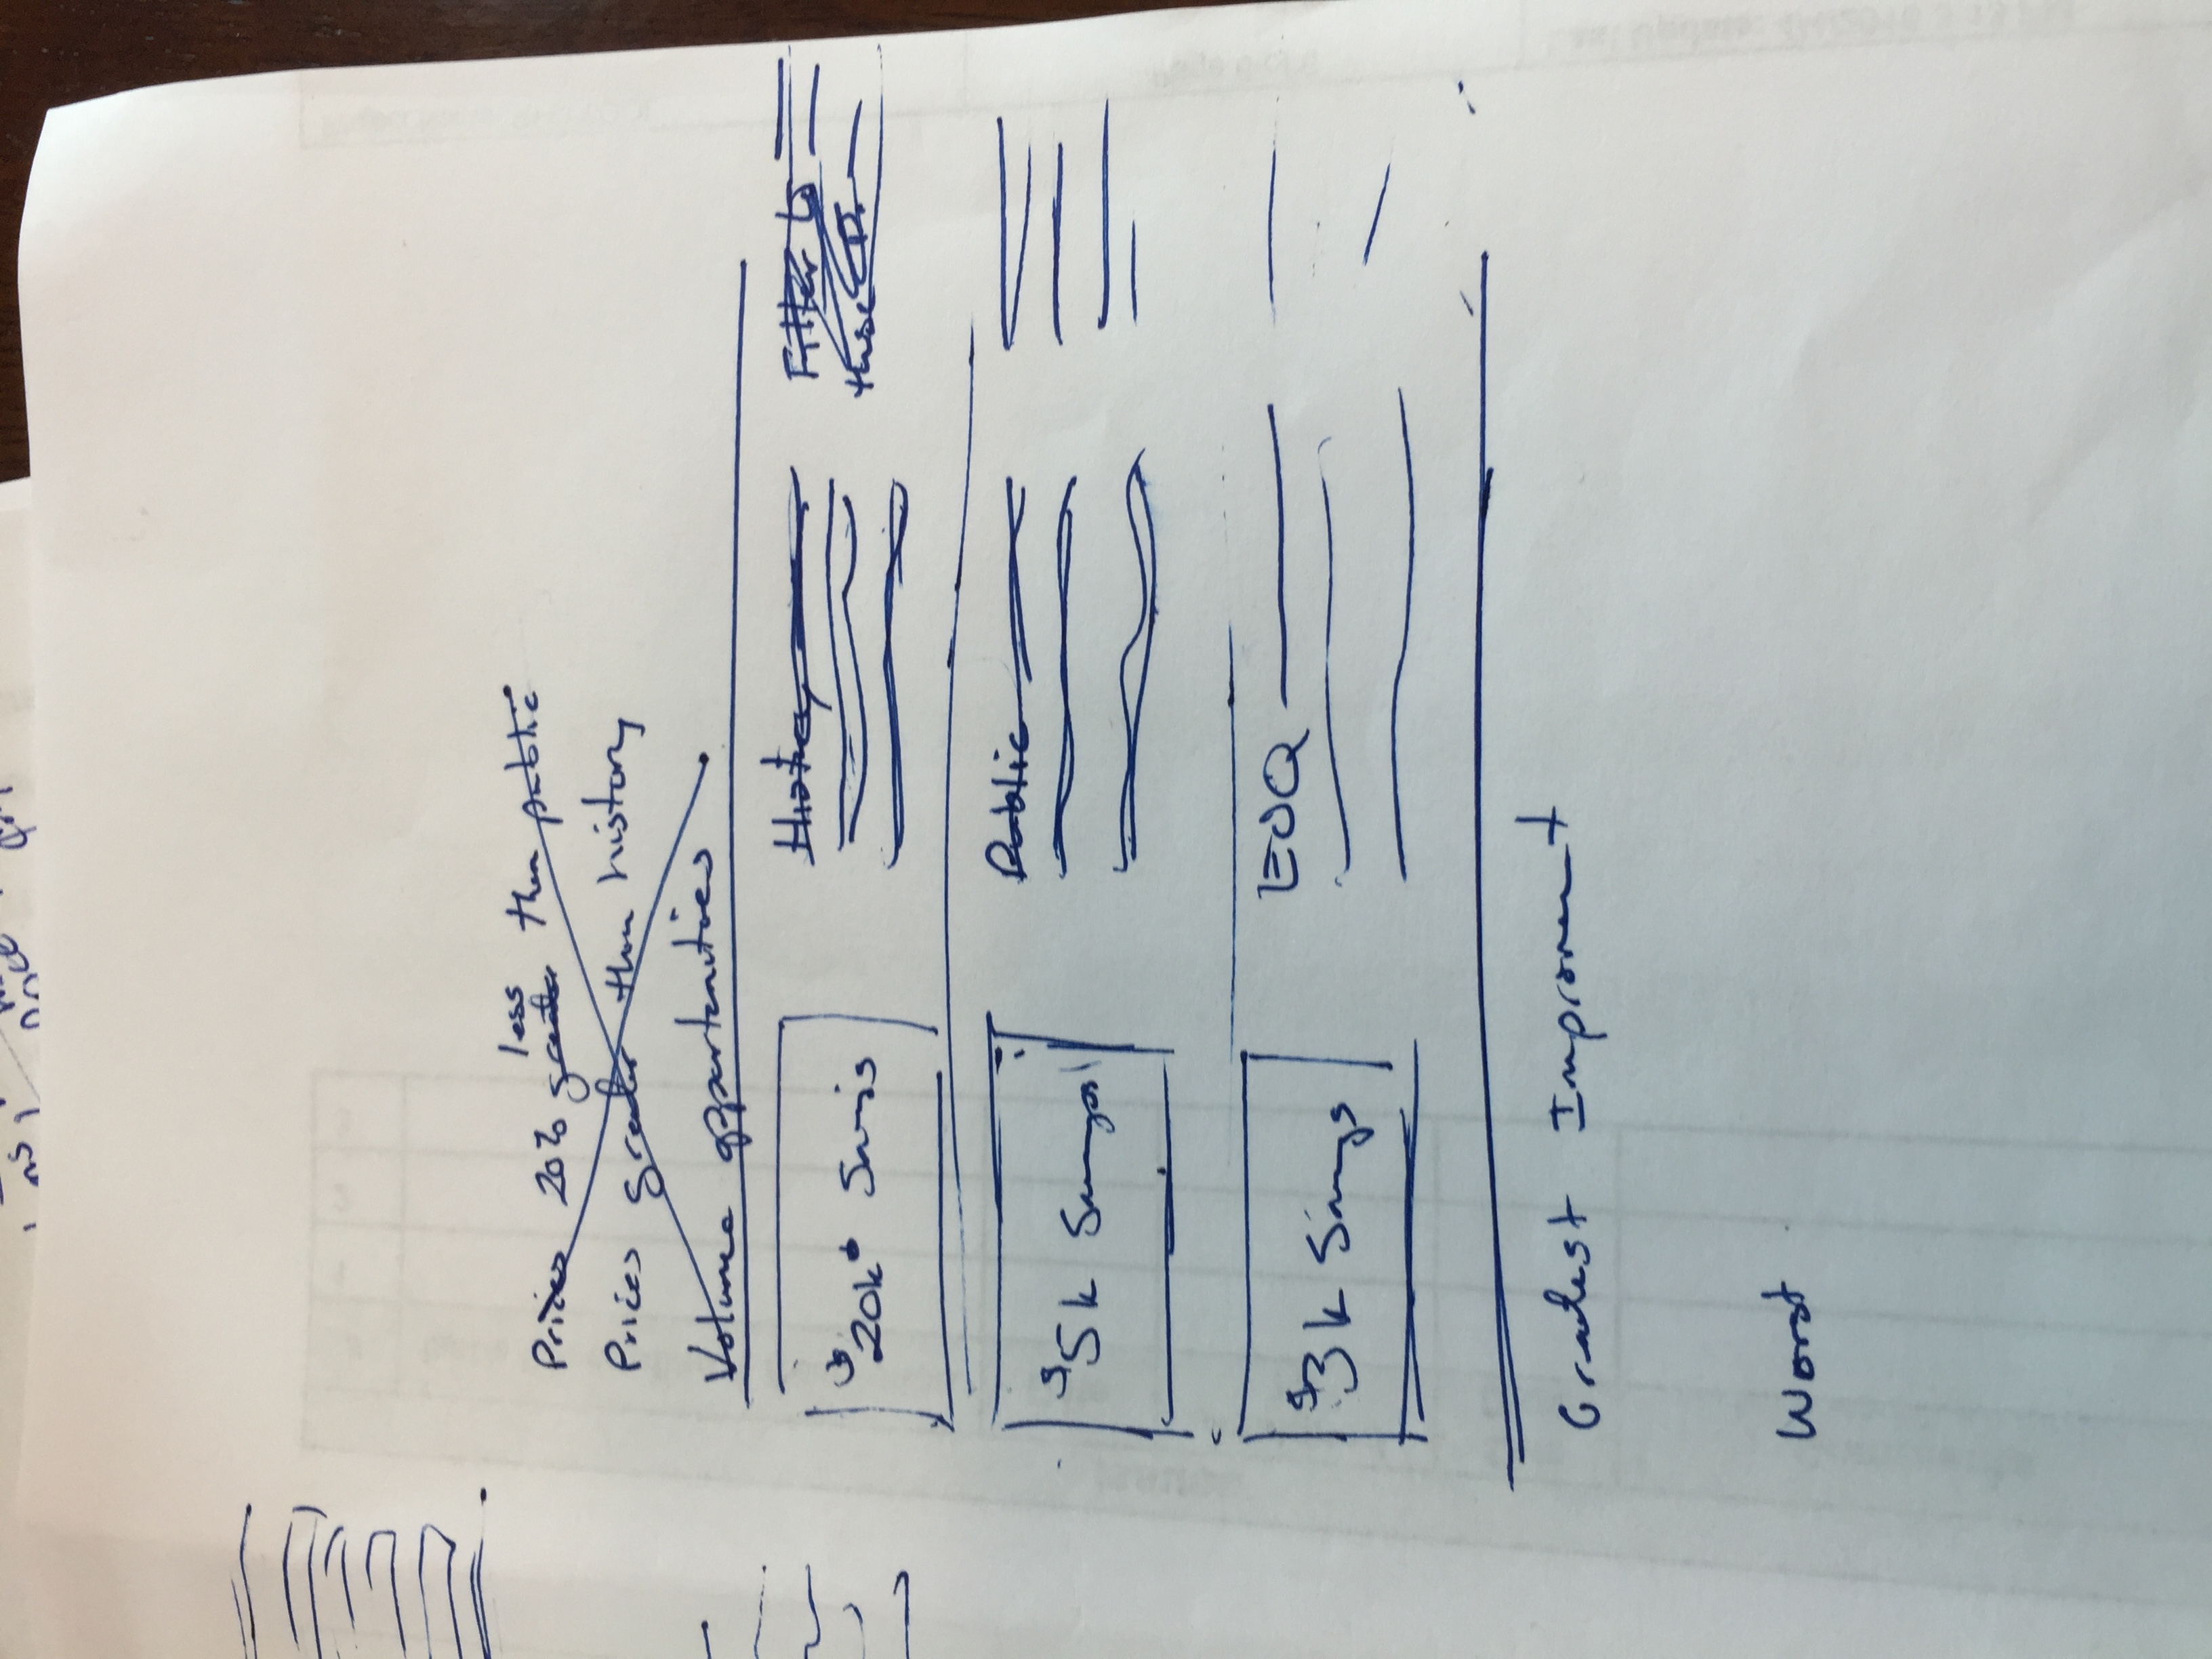 Price
less
Prices 20% greater then public
Prices greater than history
Volume opportunities
$20k Savings
History
Filter to
these
$5k Savings
Public
$3k Savings
EOQ
Greatest Improvement
Worst